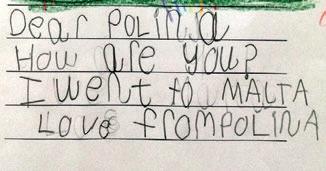 Dear POLINA
How are you?
I went to MALTA
Love from POLINA